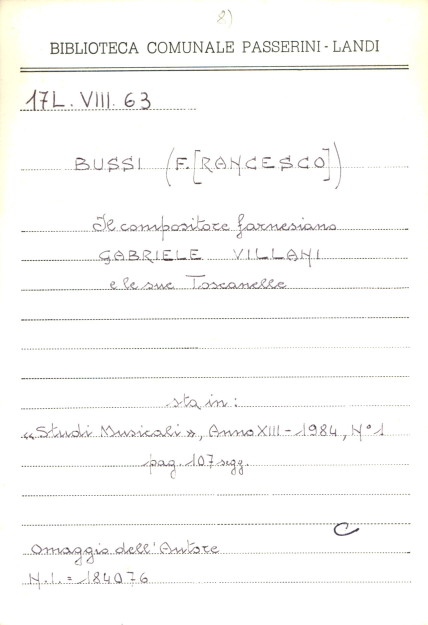 8)
BIBLIOTECA COMUNALE PASSERINI - LANDI
17L. VIII. 63
BUSSI (F.[RANCESCO])
Il compositore farnesiano
GABRIELE VILLANI
e le sue Toscanelle
sta in:
«Studi Musicali», Anno XIII - 1984, N° 1
pag. 107 segg.
C
Omaggio dell'Autore
N.I. = 184076